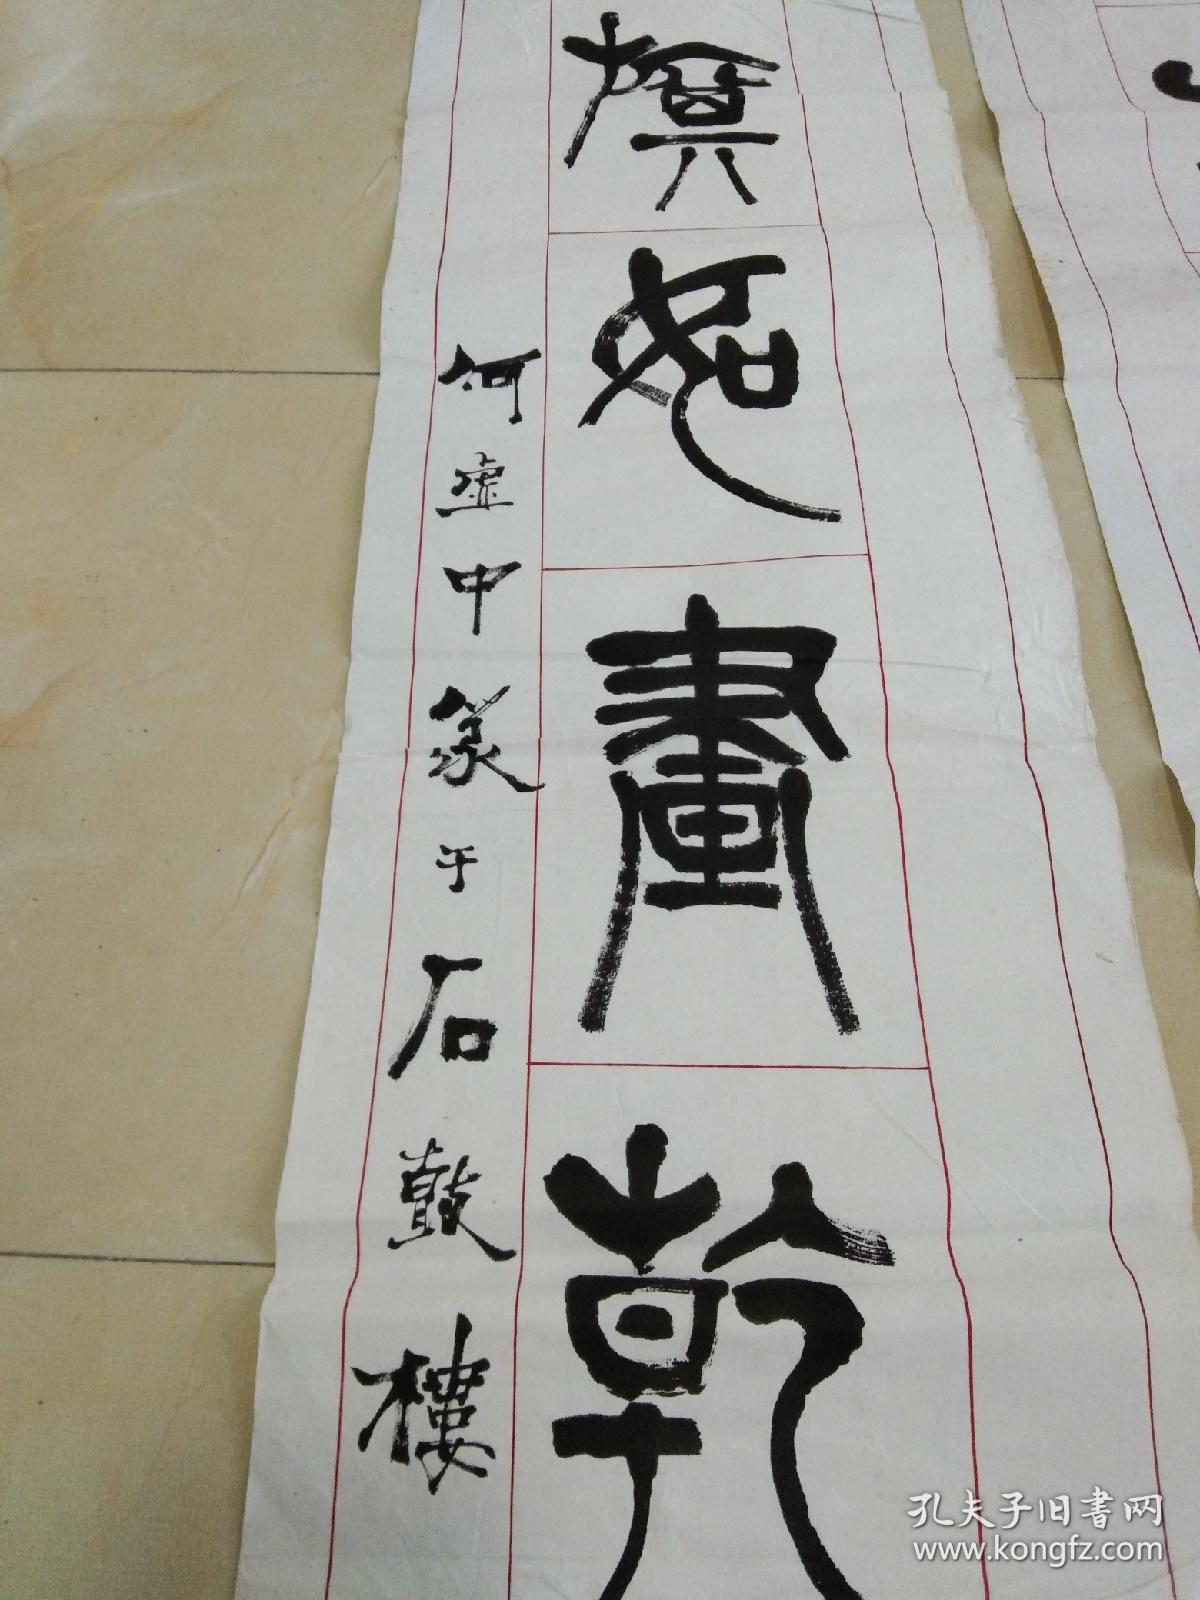 如畫乾
何虚中篆于石鼓樓
孔夫子旧書网
www.kongfz.com